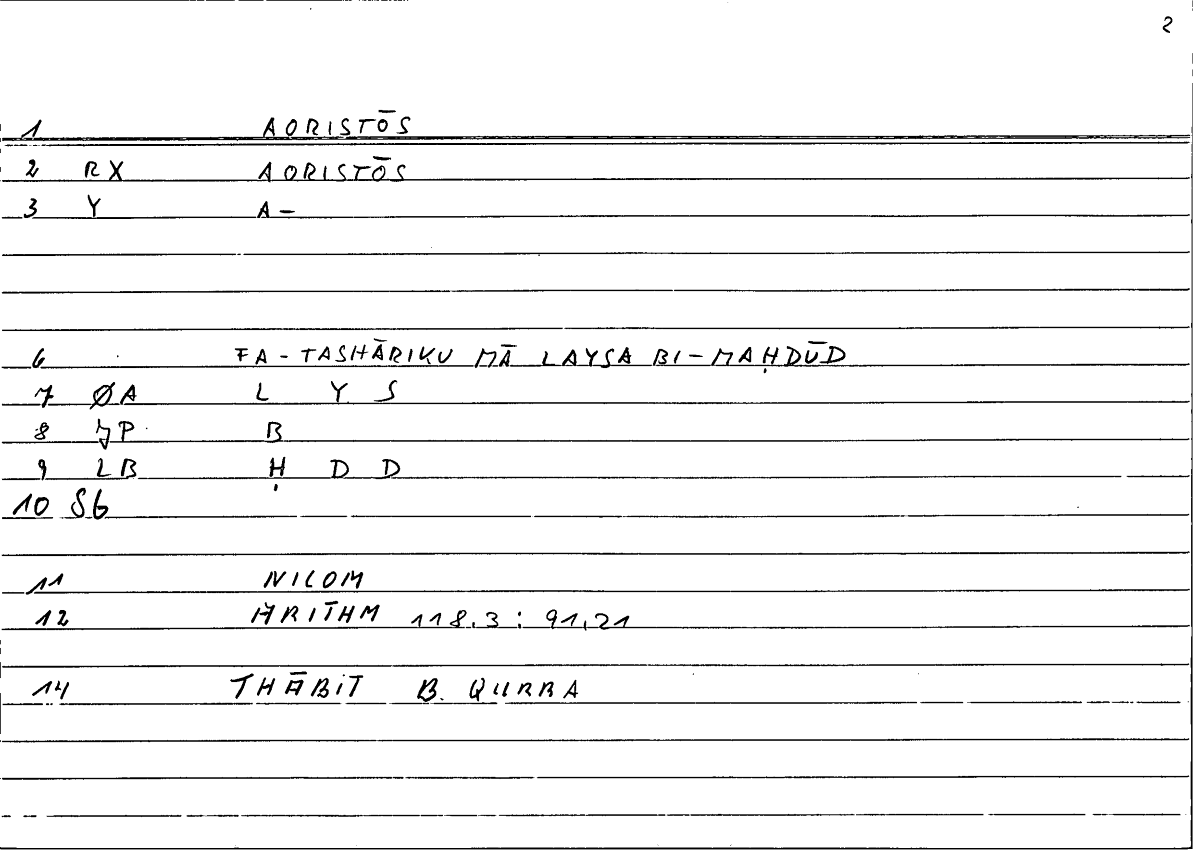 2
1 AORISTŌS
2 RX AORISTŌS
3 Y A-
6 FA-TASHĀRIKU MĀ LAYSA BI-MAḤDŪD
7 ØA L Y S
8 JP B
9 LB Ḥ D D
10 SB
11 NICOM
12 ARITHM 118.3 : 91,21
14 THĀBIT B. QURRA